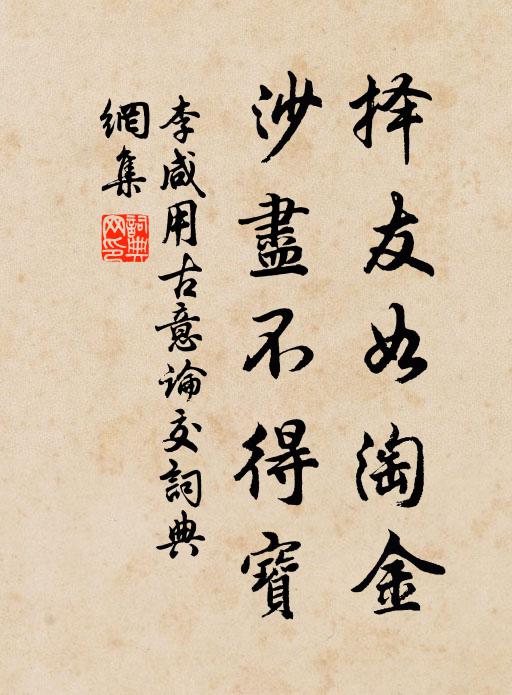 择友如淘金
沙盡不得寶
李咸用古意論交詞典
網集
詞典
网印